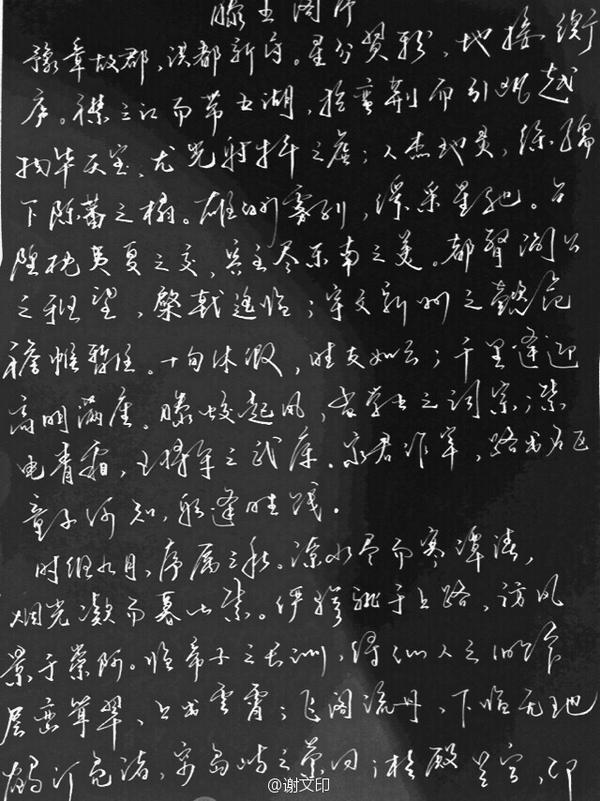 滕王阁序
豫章故郡，洪都新府。星分翼轸，地接衡
庐。襟三江而带五湖，控蛮荆而引瓯越
物华天宝，龙光射牛斗之虚；人杰地灵，徐孺
下陈蕃之榻。雄州雾列，俊采星驰。台
隍枕夷夏之交，宾主尽东南之美。都督阎公
之雅望，棨戟遥临；宇文新州之懿范
襜帷暂住。十旬休假，胜友如云；千里逢迎
高朋满座。腾蛟起凤，孟学士之词宗；紫
电青霜，王将军之武库。家君作宰，路出名区
童子何知，躬逢胜饯。
时维九月，序属三秋。潦水尽而寒潭清，
烟光凝而暮山紫。俨骖騑于上路，访风
景于崇阿。临帝子之长洲，得仙人之旧馆
层峦耸翠，上出重霄；飞阁流丹，下临无地
鹤汀凫渚，穷岛屿之萦回；桂殿兰宫，即
@谢文印